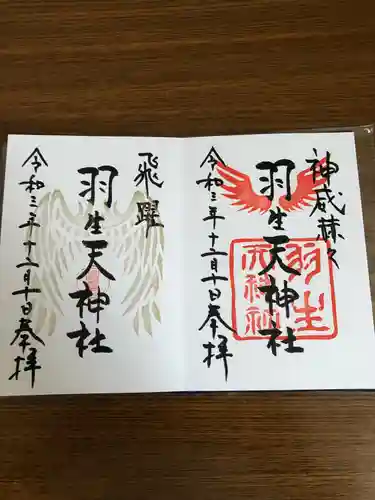 神威赫々
羽生天神社
令和三年十二月十日奉拝
羽生天神社
飛躍
羽生天神社
令和三年十二月十日奉拝